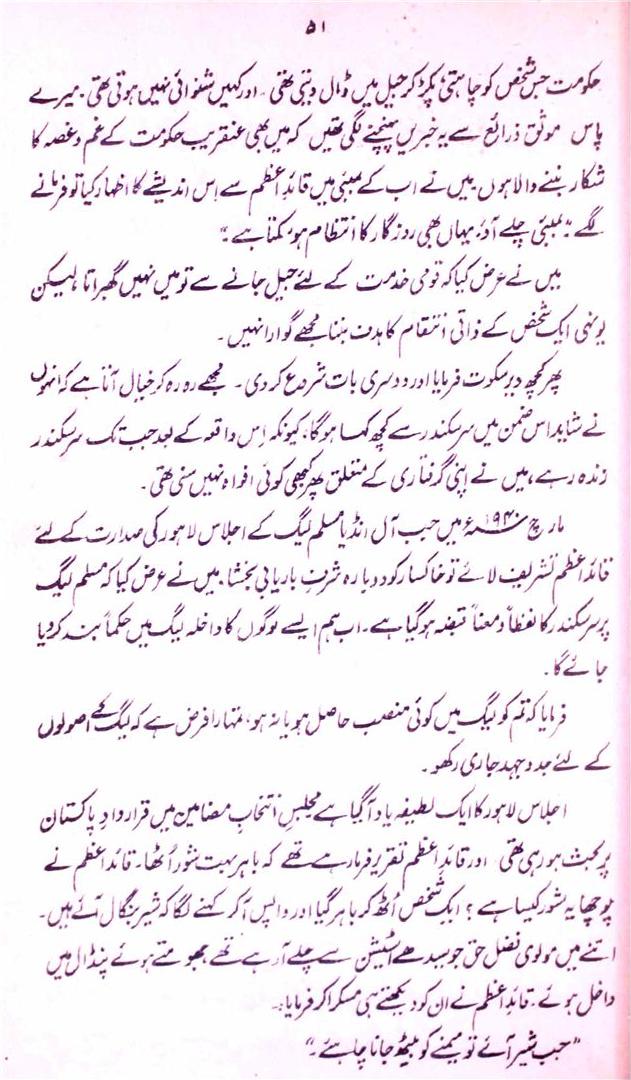 ۵۱
حکومت جس شخص کو چاہتی پکڑ کر جیل میں ڈال دیتی تھی۔ اور کہیں شنوائی نہیں ہوتی تھی۔ میرے
پاس موثق ذرائع سے یہ خبریں پہنچنے لگی تھیں کہ میں بھی عنقریب حکومت کے غم و غصہ کا
شکار بننے والا ہوں۔ میں نے اب کے بمبئی میں قائد اعظم سے اس اندیشے کا اظہار کیا تو فرمانے
لگے "بمبئی چلے آؤ، یہاں بھی روزگار کا انتظام ہو سکتا ہے۔"
میں نے عرض کیا کہ قومی خدمت کے لئے جیل جانے سے تو میں نہیں گھبراتا لیکن
یونہی ایک شخص کے ذاتی انتقام کا ہدف بننا مجھے گوارا نہیں۔
پھر کچھ دیر سکوت فرمایا اور دوسری بات شروع کر دی۔ مجھے رہ رہ کر خیال آتا ہے کہ انہوں
نے شاید اس ضمن میں سر سکندر سے کچھ کہا ہوگا، کیونکہ اس واقعہ کے بعد جب تک سر سکندر
زندہ رہے، میں نے اپنی گرفتاری کے متعلق پھر کبھی کوئی افواہ نہیں سنی تھی۔
مارچ ۱۹۴۰ء میں جب آل انڈیا مسلم لیگ کے اجلاس لاہور کی صدارت کے لئے
قائد اعظم تشریف لائے تو خاکسار کو دوبارہ شرفِ باریابی بخشا۔ میں نے عرض کیا کہ مسلم لیگ
پر سر سکندر کا لفظاً و معناً قبضہ ہو گیا ہے۔ اب ہم ایسے لوگوں کا داخلہ لیگ میں حکماً بند کر دیا
جائے گا۔
فرمایا کہ تم کو لیگ میں کوئی منصب حاصل ہو یا نہ ہو، تمہارا فرض ہے کہ لیگ کے اصولوں
کے لئے جدوجہد جاری رکھو۔
اجلاس لاہور کا ایک لطیفہ یاد آ گیا ہے مجلسِ انتخابِ مضامین میں قرار دادِ پاکستان
پر بحث ہو رہی تھی اور قائد اعظم تقریر فرما رہے تھے کہ باہر بہت شور اُٹھا۔ قائد اعظم نے
پوچھا یہ شور کیسا ہے؟ ایک شخص اُٹھ کر باہر گیا اور واپس آ کر کہنے لگا کہ شیرِ بنگال آئے ہیں۔
اتنے میں مولوی فضل حق جو سیدھے اسٹیشن سے چلے آ رہے تھے، جھومتے ہوئے پنڈال میں
داخل ہوئے۔ قائد اعظم نے ان کو دیکھتے ہی مسکرا کر فرمایا:۔
"جب شیر آئے تو میمنے کو بیٹھ جانا چاہئے۔"